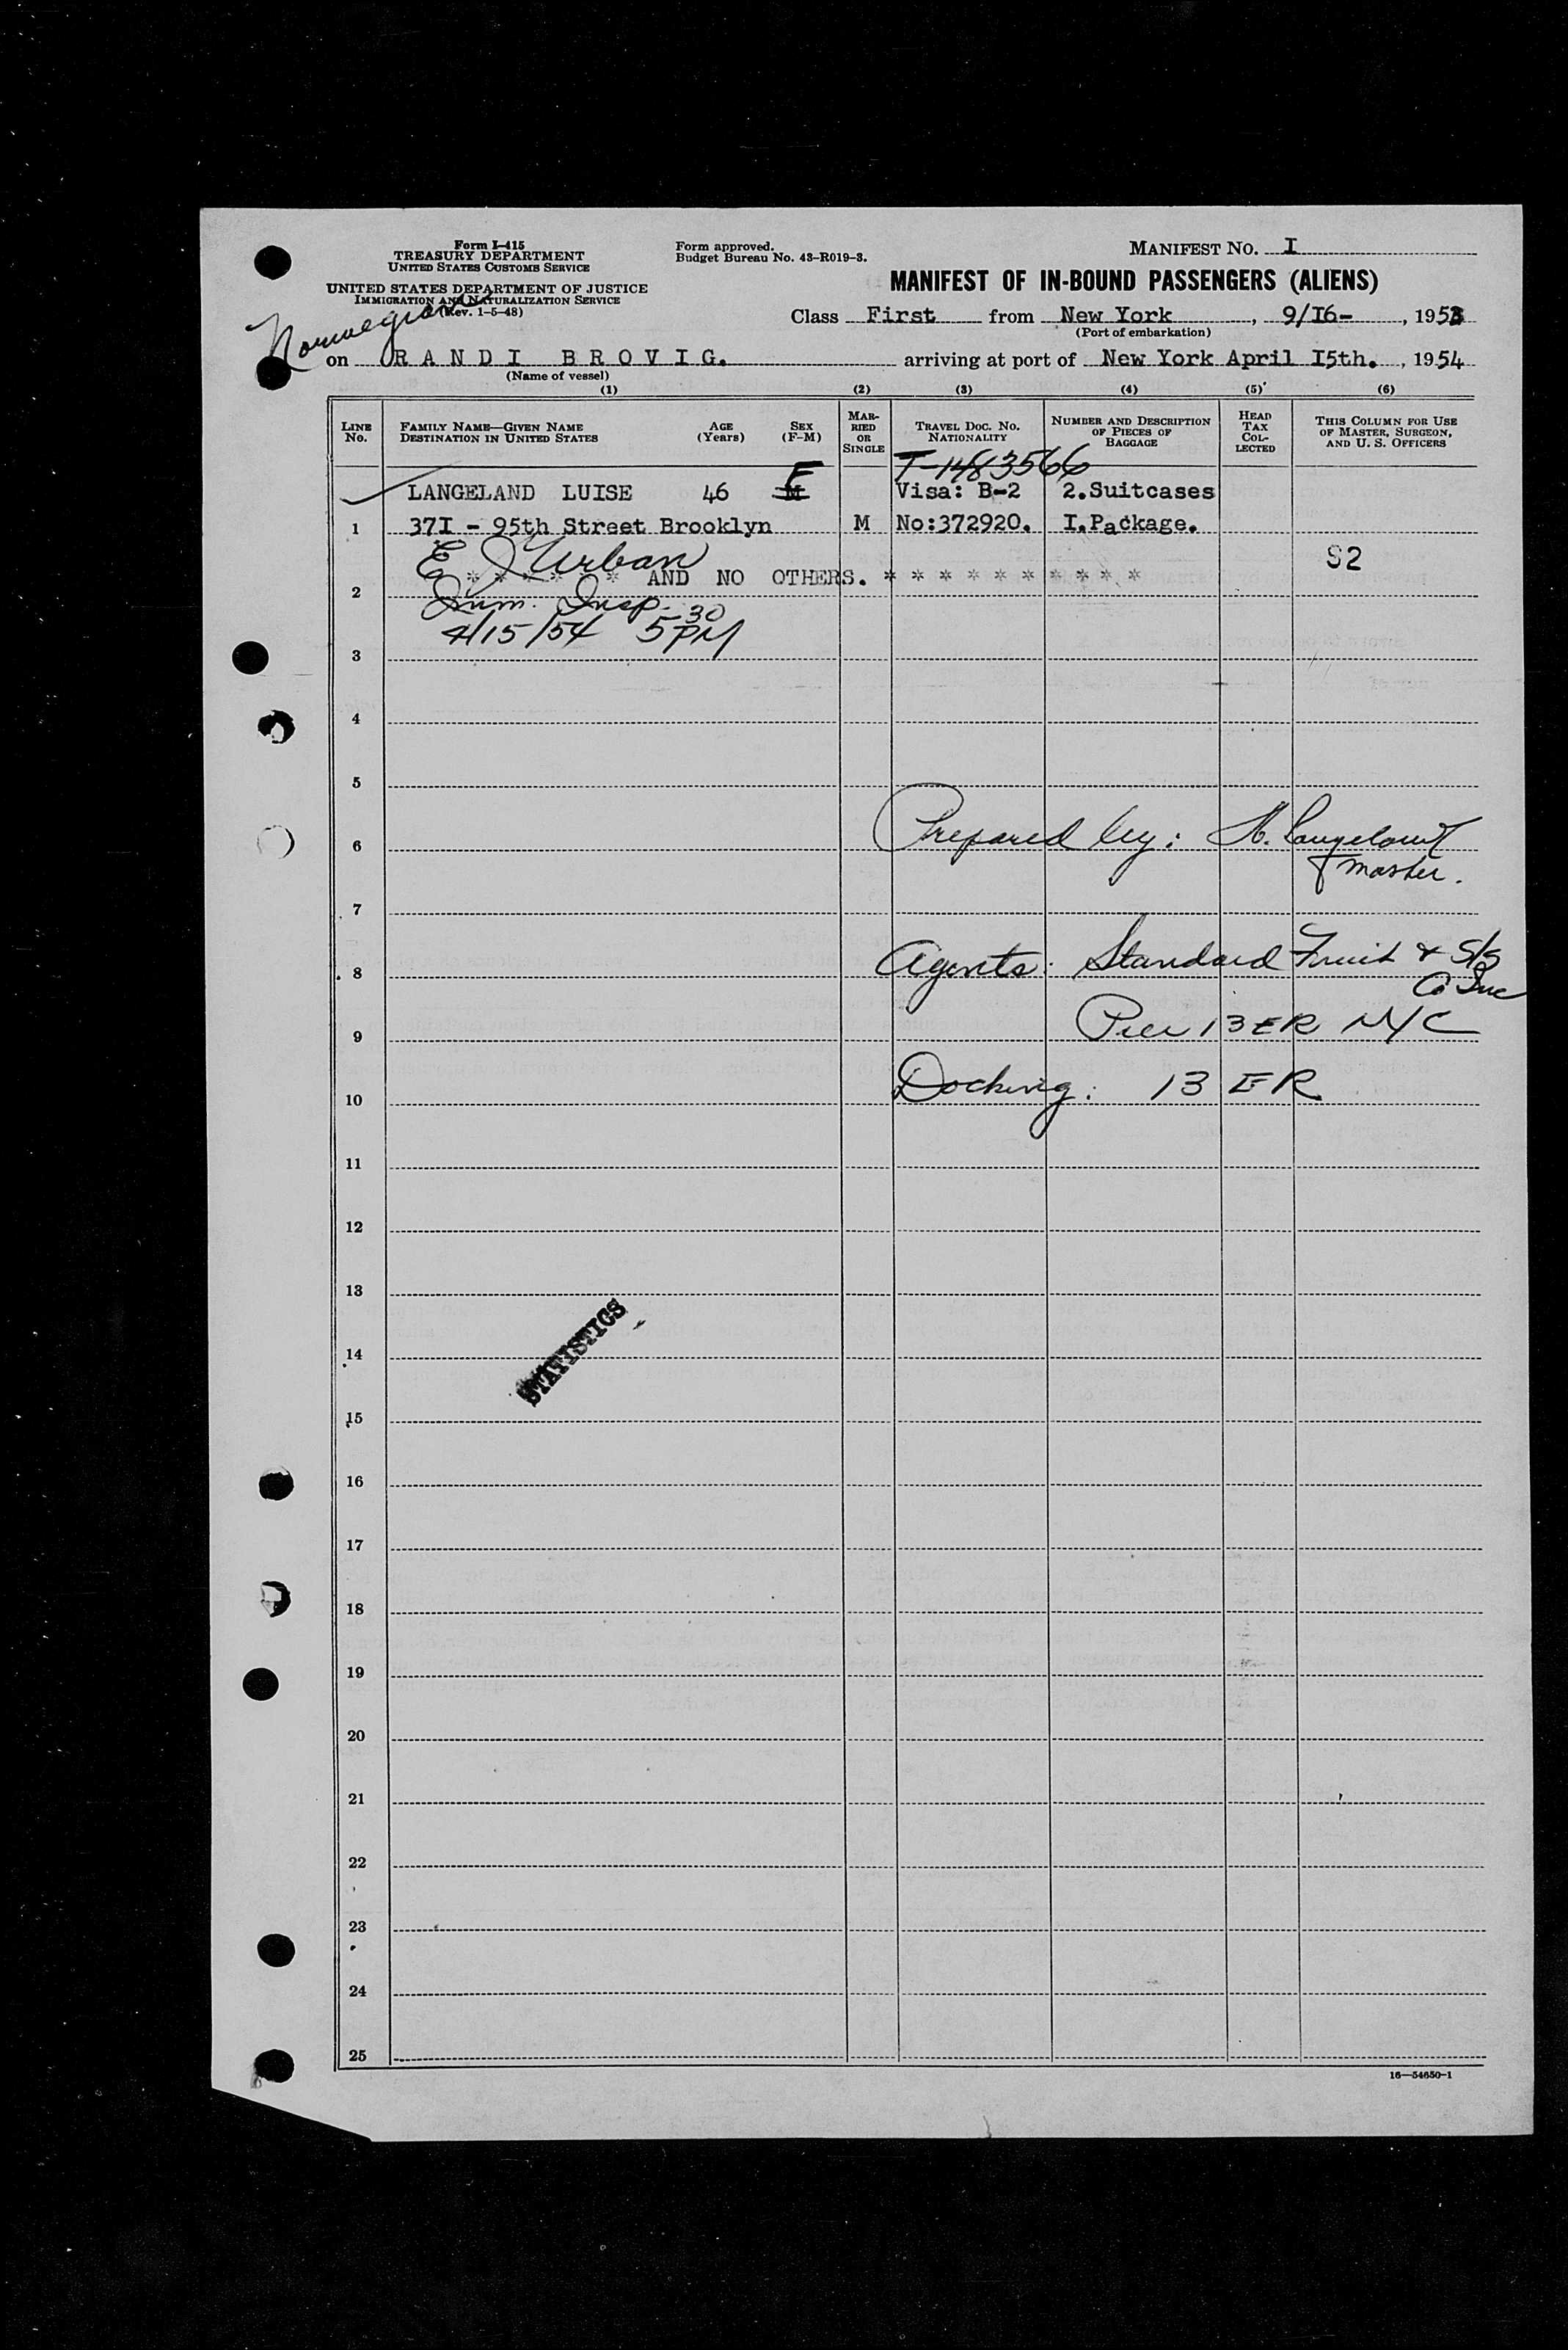 Form I-415
TREASURY DEPARTMENT
UNITED STATES CUSTOMS SERVICE
UNITED STATES DEPARTMENT OF JUSTICE
IMMIGRATION AND NATURALIZATION SERVICE
(Rev. 1-5-48)
Form approved.
Budget Bureau No. 43-R019-3.
MANIFEST NO. I
MANIFEST OF IN-BOUND PASSENGERS (ALIENS)
Class First from New York, 9/I6-, 1953
(Port of embarkation)
Norwegian
on RANDI BROVIG. arriving at port of New York April I5th., 1954
(Name of vessel)
(1) (2) (3) (4) (5) (6)
LINE No.
FAMILY NAME—GIVEN NAME
DESTINATION IN UNITED STATES
AGE (Years)
SEX (F-M)
MARRIED OR SINGLE
TRAVEL DOC. NO. NATIONALITY
NUMBER AND DESCRIPTION OF PIECES OF BAGGAGE
HEAD TAX COLLECTED
THIS COLUMN FOR USE OF MASTER, SURGEON, AND U. S. OFFICERS
T-1483566
F
LANGELAND LUISE 46 M Visa: B-2 2.Suitcases
1 37I - 95th Street Brooklyn M No:372920. I.Package.
E J Urban
S2
2 * * * * * * AND NO OTHERS. * * * * * * * * * *
Imm. Insp.
4/15/54 5 30 PM
3
4
5
6 Prepared by: H. Langeland
Master.
7
8 Agents: Standard Fruit & S/S
Co Inc
9 Pier 13 ER NYC
10 Docking: 13 ER
11
12
13
STATISTICS
14
15
16
17
18
19
20
21
22
23
24
25
16—54650-1